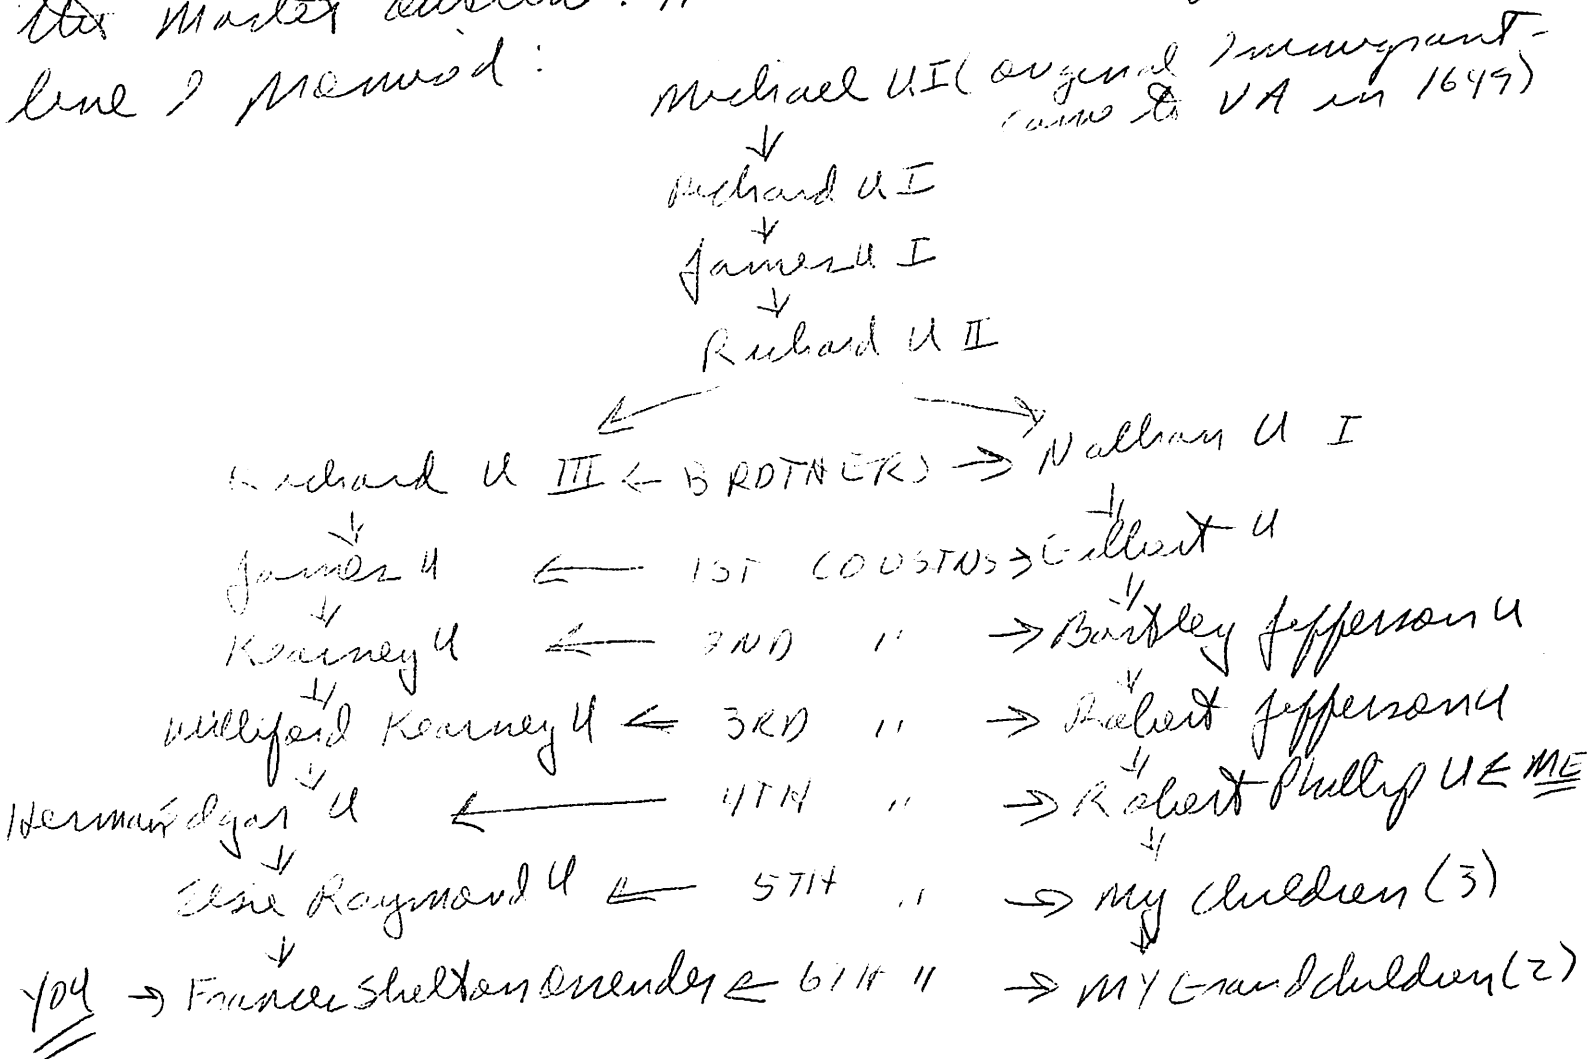 the Master
line I
Michael U I (original Immigrant-
came to VA in 1649)
Richard U I
James U I
Richard U II
Richard U III ← BROTHERS → Nathan U I
James U ← 1ST COUSINS → Gilbert U
Kearney U ← 2ND " → Bartley Jefferson U
Williford Kearney U ← 3RD " → Robert Jefferson U
Herman Edgar U ← 4TH " → Robert Phillip U ← ME
Raymond U ← 5TH " → My children (3)
YOU → Frances Shelton ← 6TH " → MY Grandchildren (2)